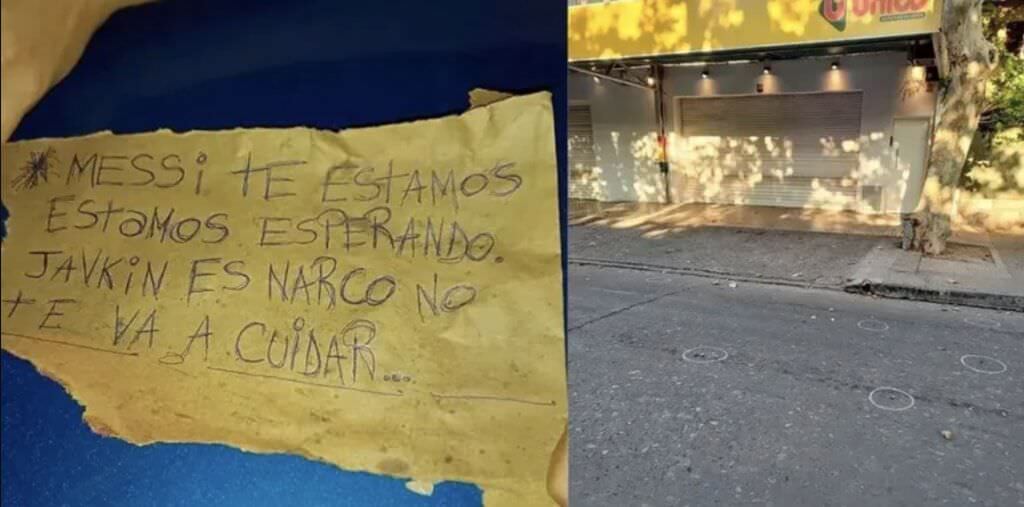 MESSi tE EStAMOS
EStaMOS ESPERANDO.
JAVKiN ES NARCO NO
tE VA A CUiDAR...
UNICO